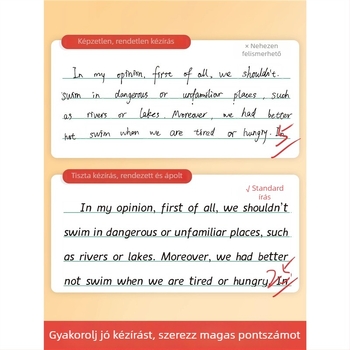 Képzetlen, rendetlen kézírás
× Nehezen
felismerhető
In my opinion, first of all, we shouldn't.
swim in dangerous or unfamiliar places, such
as rivers or lakes. Moreover, we had better
not swim when we are tired or hungry. In
15
Tiszta kézírás, rendezett és ápolt
√ Standard
írás
In my opinion, first of all, we shouldn't
swim in dangerous or unfamiliar places, such
as rivers or lakes. Moreover, we had better
not swim when we are tired or hungry. In
25
Gyakorolj jó kézírást, szerezz magas pontszámot